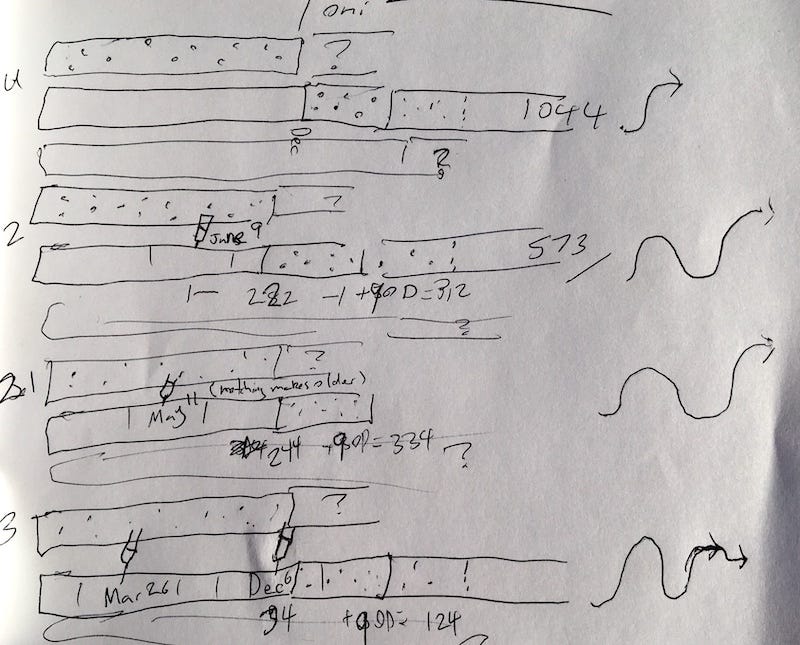 oni
?
4
1044
Dec
?
?
2
June 9
573
282 -1 +90D=312
?
?
2.1
(matching makes older)
May 11
244 +90D=334
?
?
3
Mar 26
Dec 6
94 +90D= 124